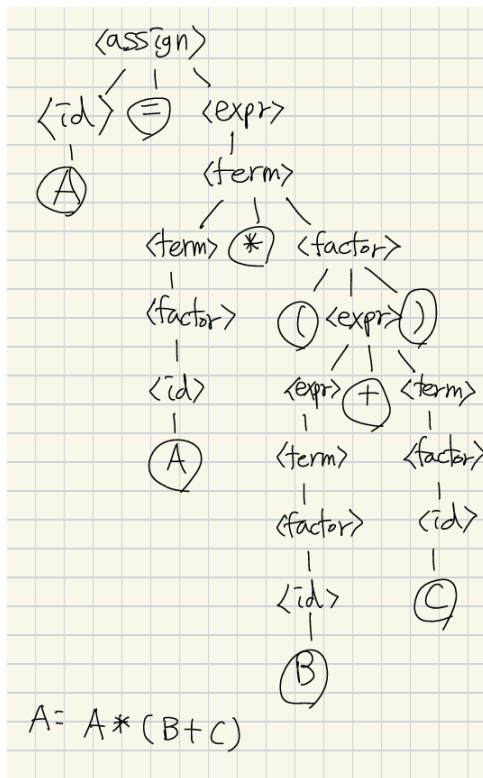 <assign>
<id> = <expr>
A <term>
<term> * <factor>
<factor> ( <expr> )
<id> <expr> + <term>
A <term> <factor>
<factor> <id>
<id> C
B
A= A * (B+C)